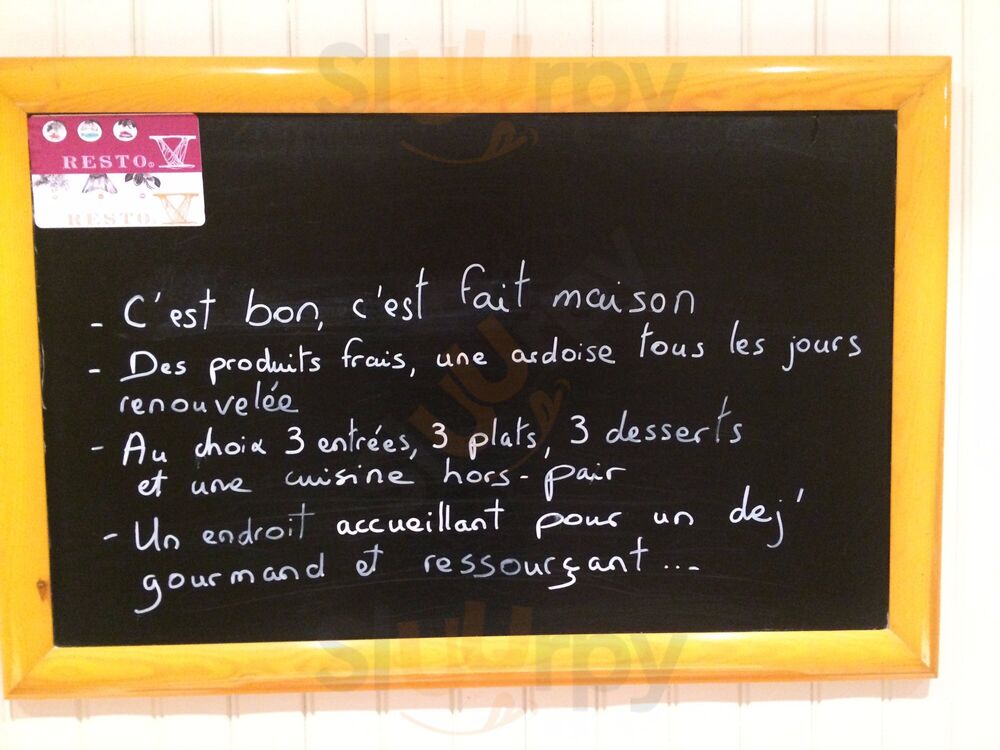 Sluurpy
RESTO.
RESTO
- C'est bon, c'est fait maison
- Des produits frais, une ardoise tous les jours
renouvelée
- Au choix 3 entrées, 3 plats, 3 desserts
et une cuisine hors-pair
- Un endroit accueillant pour un dej'
gourmand et ressourçant...
Sluurpy